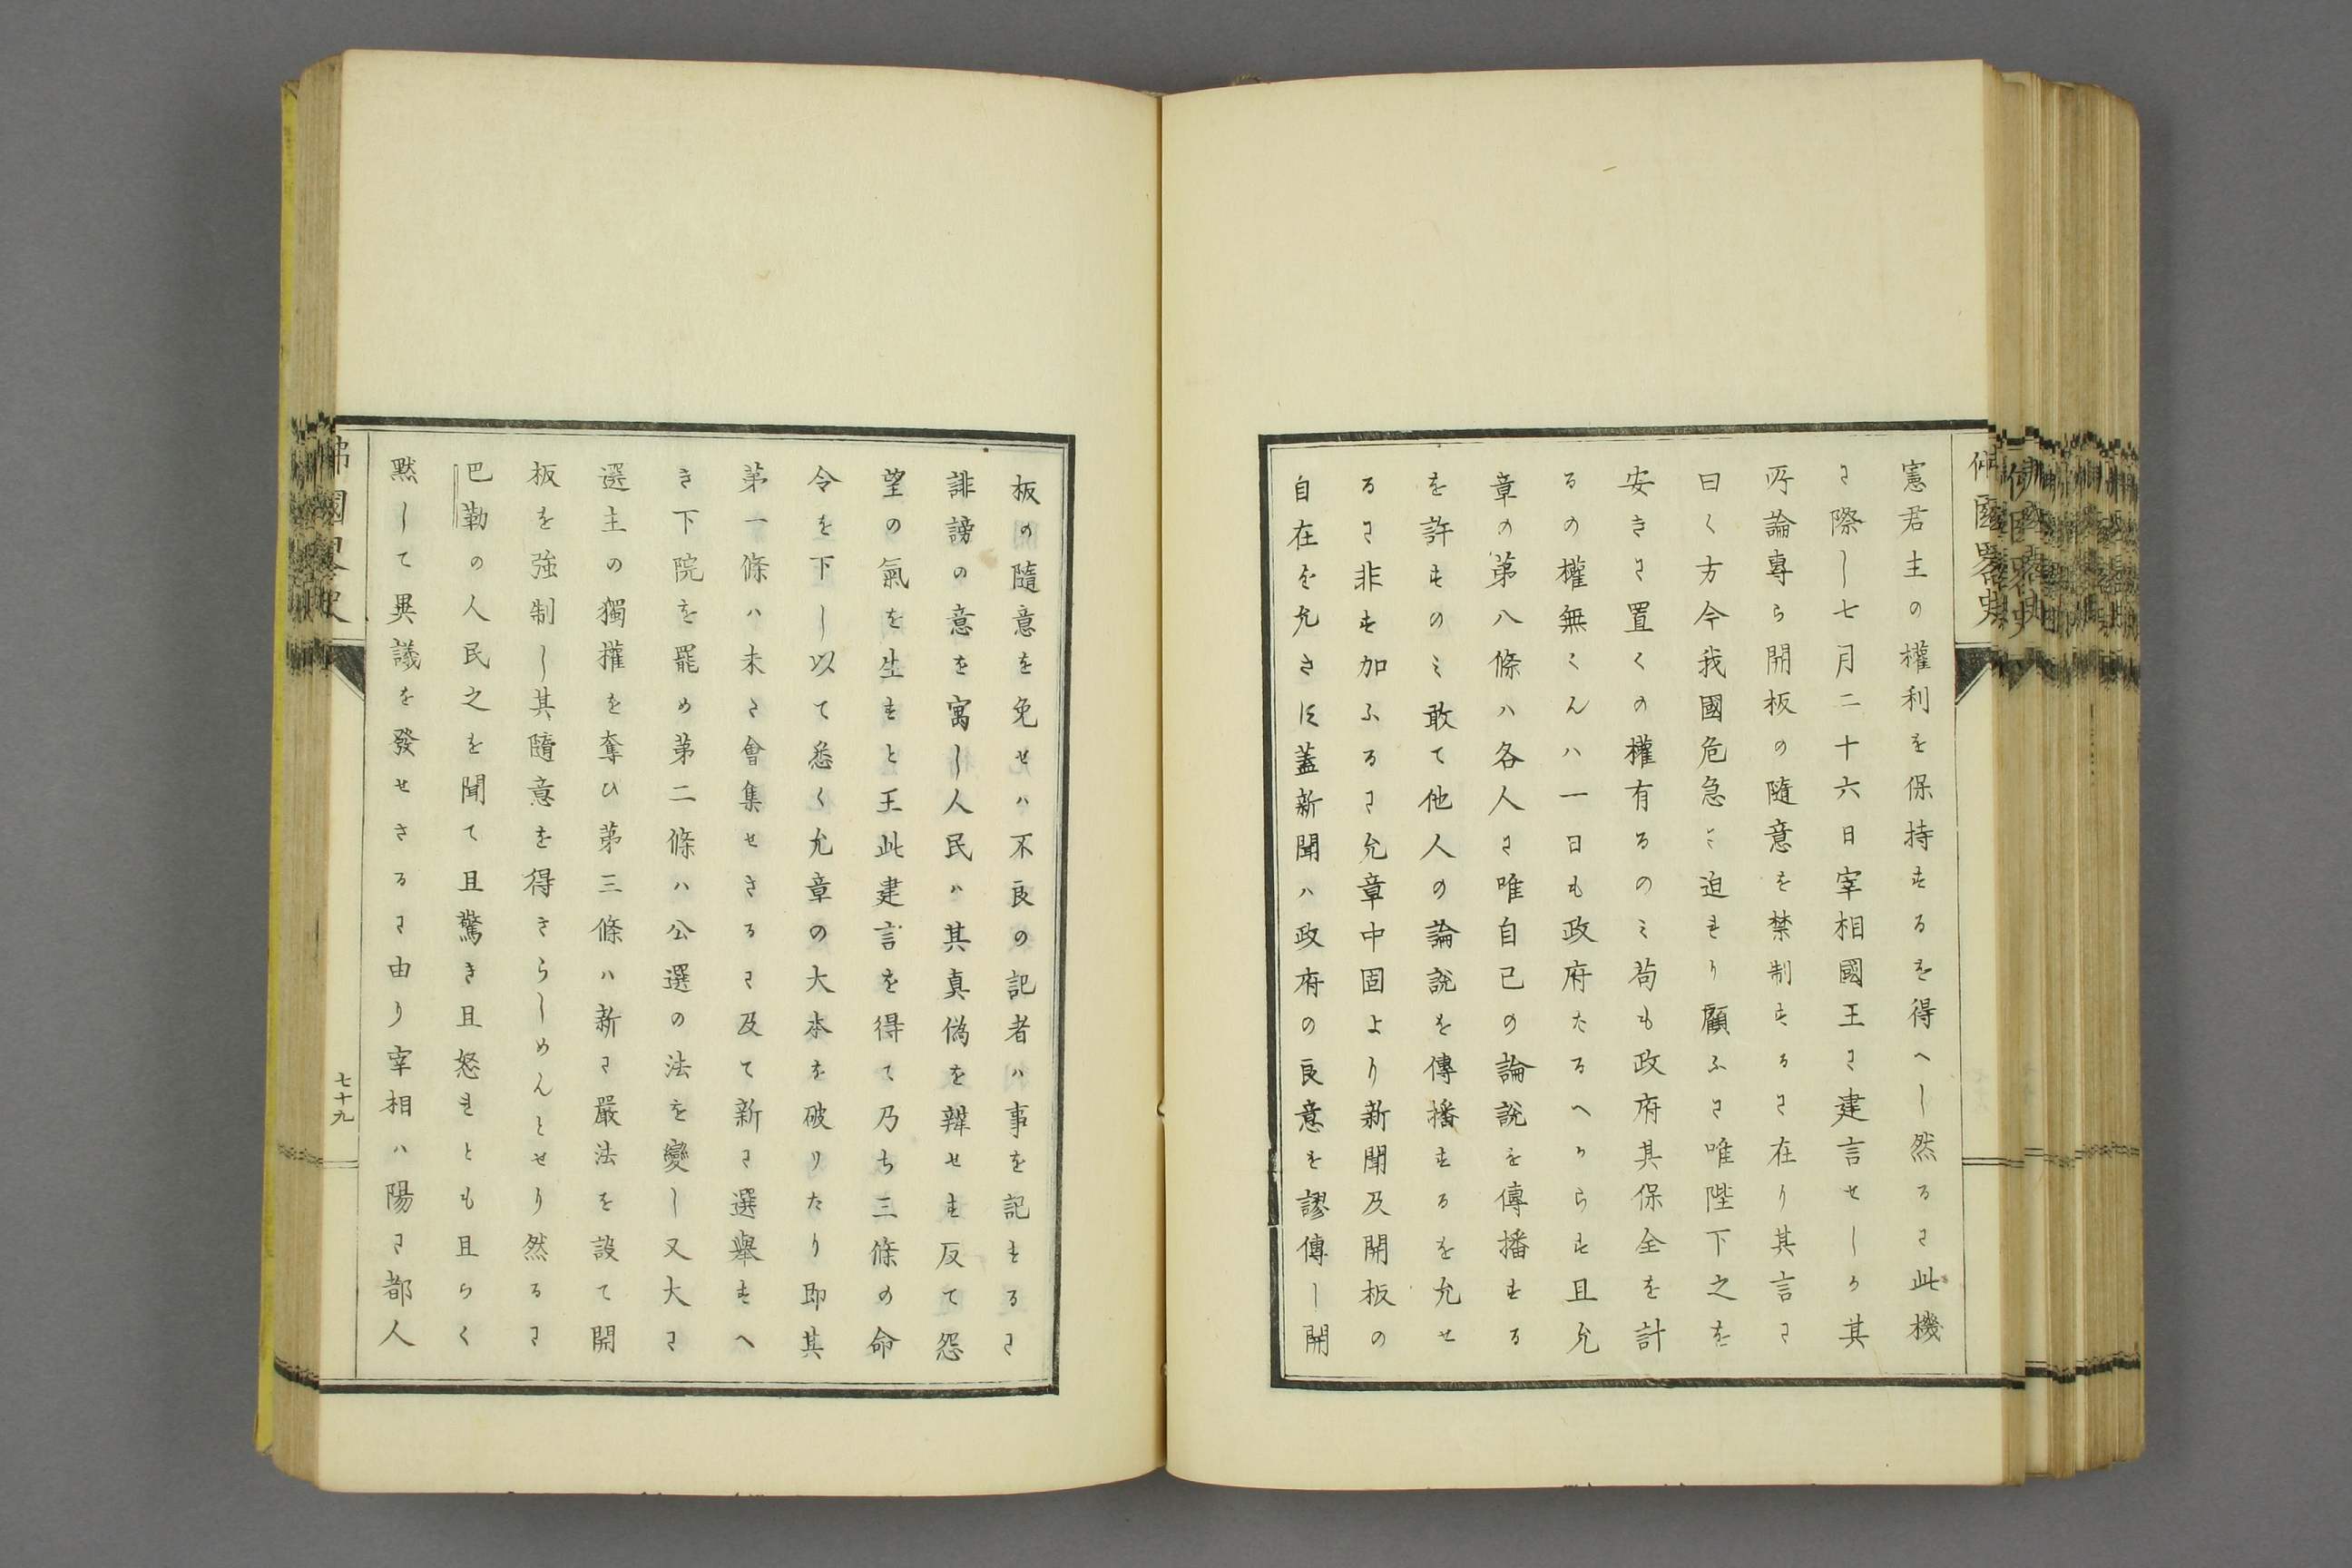 憲君主の權利を保持するを得へし然るに此機
に際し七月二十六日宰相國王に建言せしか其
所論專ら開板の隨意を禁制するに在り其言に
曰く方今我國危急に迫れり顧ふに唯陛下之を
安きに置くの權有るのミ苟も政府其保全を計
るの權無くんハ一日も政府たるへからす且允
章の第八條ハ各人に唯自己の論說を傳播する
を許すのミ敢て他人の論說を傳播するを允せ
るに非す加ふるに允章中固より新聞及開板の
自在を允さす蓋新聞ハ政府の良意を謬傳し開
佛國畧史
板の隨意を免せハ不良の記者ハ事を記するに
誹謗の意を寓し人民ハ其真偽を辨せす反て怨
望の氣を生すと王此建言を得て乃ち三條の命
令を下し以て悉く允章の大本を破りたり即其
第一條ハ未た會集せさるに及て新に選擧すへ
き下院を罷め第二條ハ公選の法を變し又大に
選主の獨權を奪ひ第三條ハ新に嚴法を設て開
板を強制し其隨意を得さらしめんとせり然るに
巴勒の人民之を聞て且驚き且怒れとも且らく
黙して異議を發せさるに由り宰相ハ陽に都人
佛國畧史
七十九